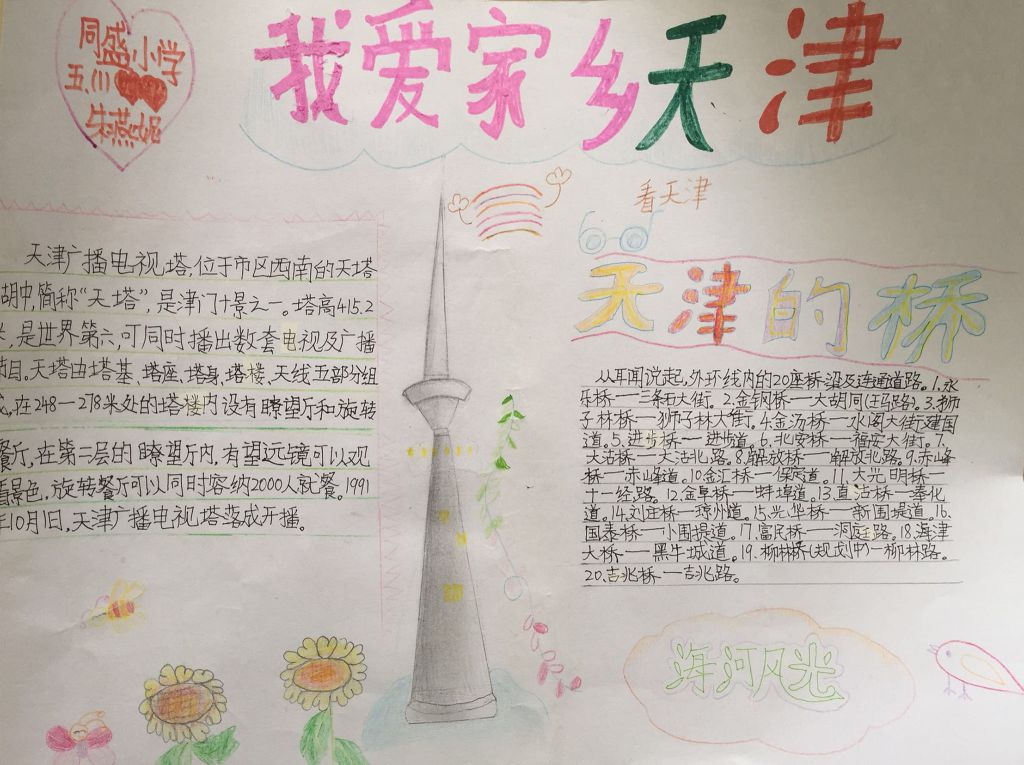 同盛小学
五.川
朱燕妮
我爱家乡天津
看天津
天津广播电视塔,位于市区西南的天塔
湖中,简称“天塔”,是津门十景之一。塔高415.2
,是世界第六,可同时播出数套电视及广播
目。天塔由塔基、塔座、塔身、塔楼、天线五部分组
,在248一278米处的塔楼内设有瞭望厅和旋转
餐厅,在第二层的瞭望厅内,有望远镜可以观
看景色,旋转餐厅可以同时容纳2000人就餐。1991
年10月1日,天津广播电视塔落成开播。
天津的桥
从耳闻说起,外环线内的20座桥梁及连通道路。1.永
乐桥一三条石大街。2.金钢桥一大胡同(王马路)。3.狮
子林桥一狮子林大街。4.金汤桥一水阁大街建国
道。5.进步桥一进步道。6.北安桥一福安大街。7.
大沽桥一大沽北路。8.解放桥一解放北路。9.赤峰
桥一赤峰道。10.金汇桥一保定道。11.大光明桥一
十一经路。12.金阜桥一蚌埠道。13.直沽桥一奉化
道。14.刘庄桥一琼州道。15.光华桥一新围堤道。16.
国泰桥一小围堤道。17.富民桥一洞庭路。18.海津
大桥一黑牛城道。19.柳林桥(规划中)一柳林路。
20.吉兆桥一吉兆路。
海河风光